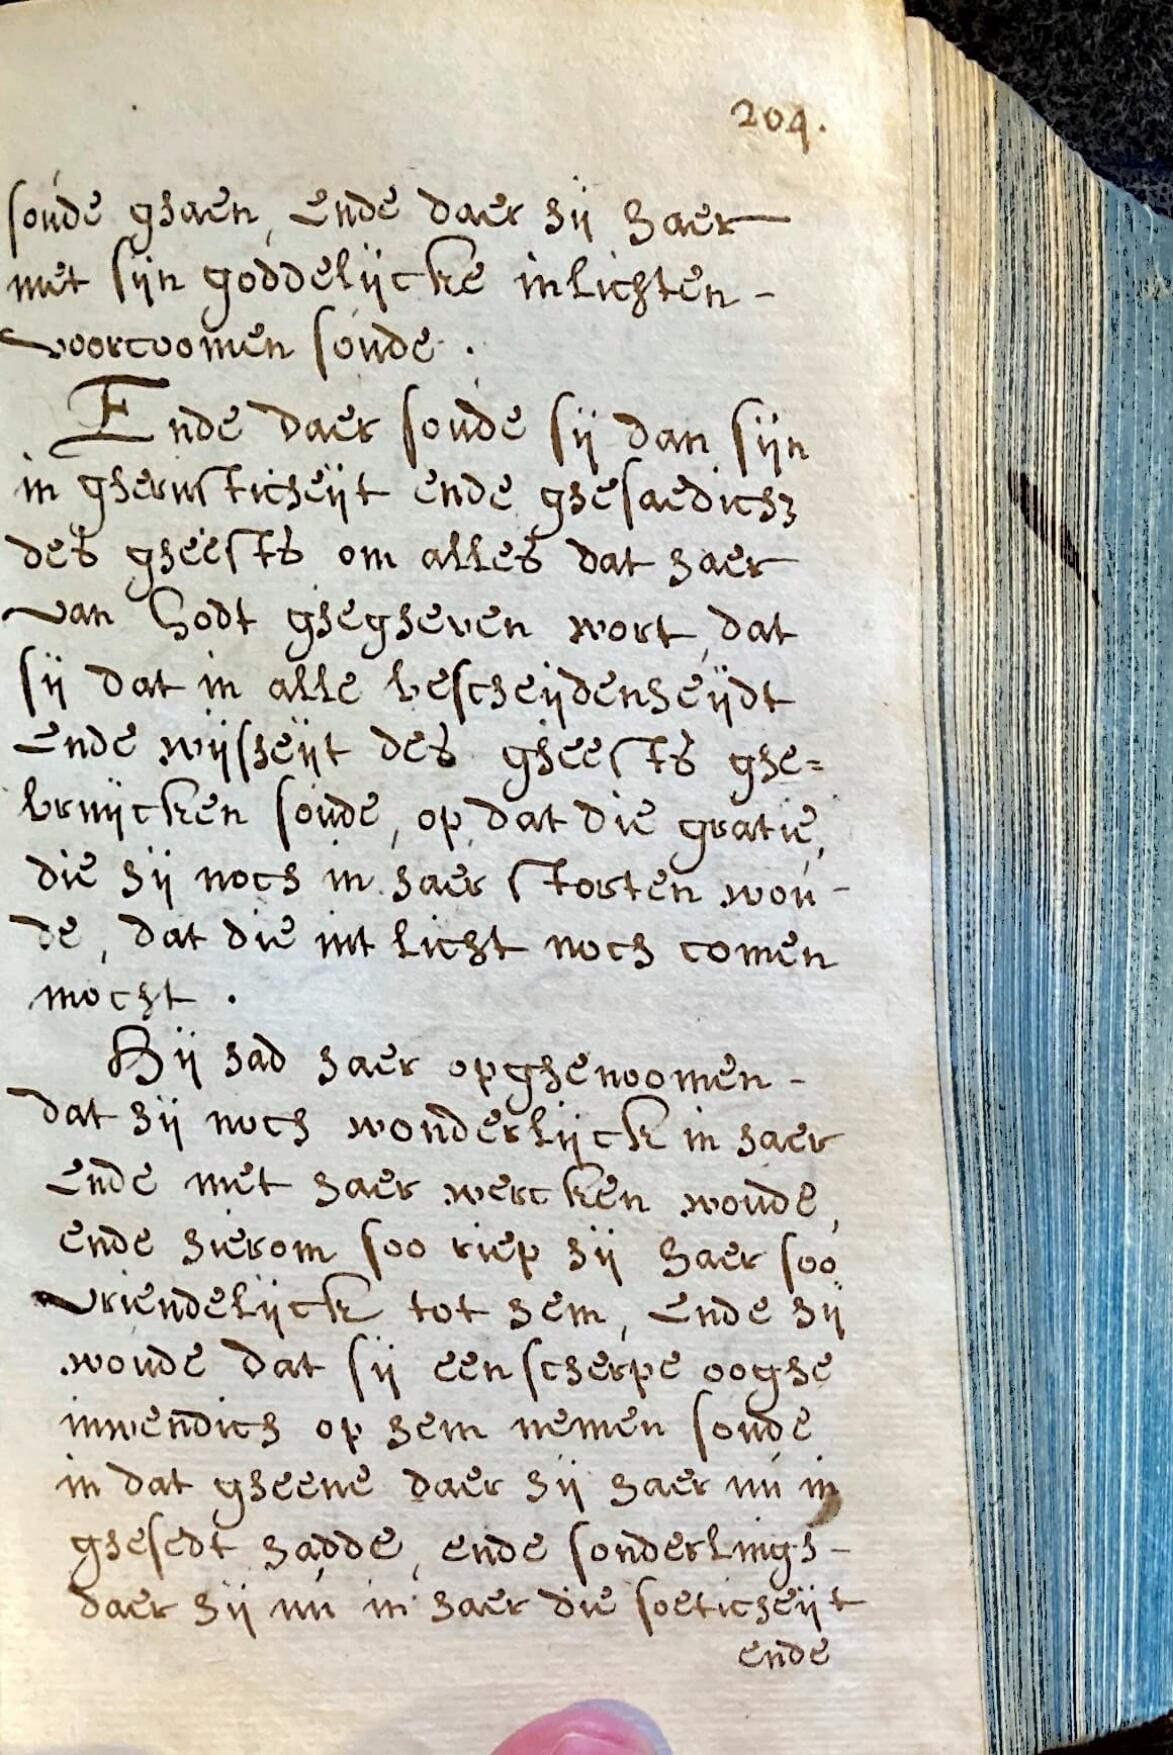 204.
soude ghaen, ende daer hij haer
met sijn goddelijcke inlichten -
voorcoomen soude .
Ende daer soude sij dan sijn
in gherusticheijt ende ghesaedich3
des gheests om alles dat haer
van Godt ghegheven wort, dat
sij dat in alle bescheijdenheijdt
Ende wijsheijt des gheests ghe=
bruijcken soude, op dat die gratie,
die hij noch in haer storten wou -
de, dat die int licht noch comen
mocht .
Hij had haer opghenoomen -
dat hij noch wonderlijck in haer
Ende met haer wercken woude,
ende hierom soo riep hij haer soo
vriendelijck tot hem, Ende hij
woude dat sij een scherpe ooghe
inwendich op hem nemen soude
in dat gheene daer hij haer nu in
ghesedt hadde, ende sonderlingh -
daer hij nu in haer die soeticheijt
ende